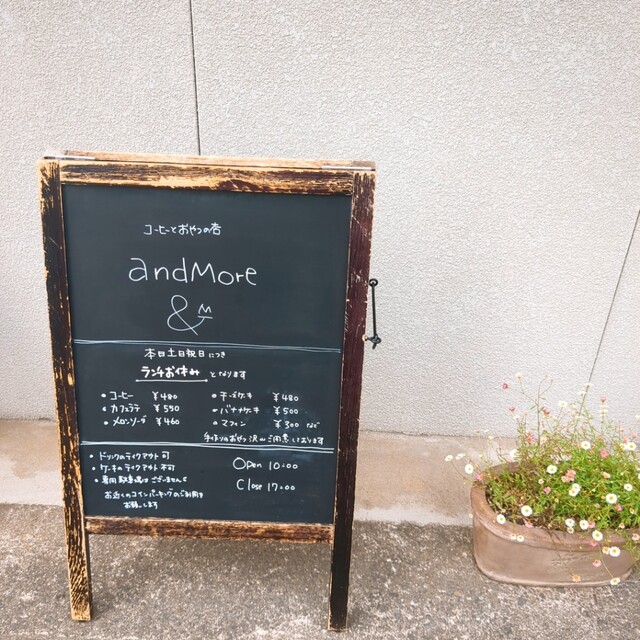 コーヒーとおやつの店
andMore
&M
本日土日祝日につき
ランチお休み となります
• コーヒー ¥480
• カフェラテ ¥550
• メロンソーダ ¥460
• チーズケーキ ¥480
• バナナケーキ ¥500
• マフィン ¥300
手作りのおやつ 沢山ご用意しております
• ドリンクのテイクアウト 可
• ケーキのテイクアウト 不可
• 専用駐車場はございません
お近くのコインパーキングのご利用を
お願いします
Open 10:00
Close 17:00